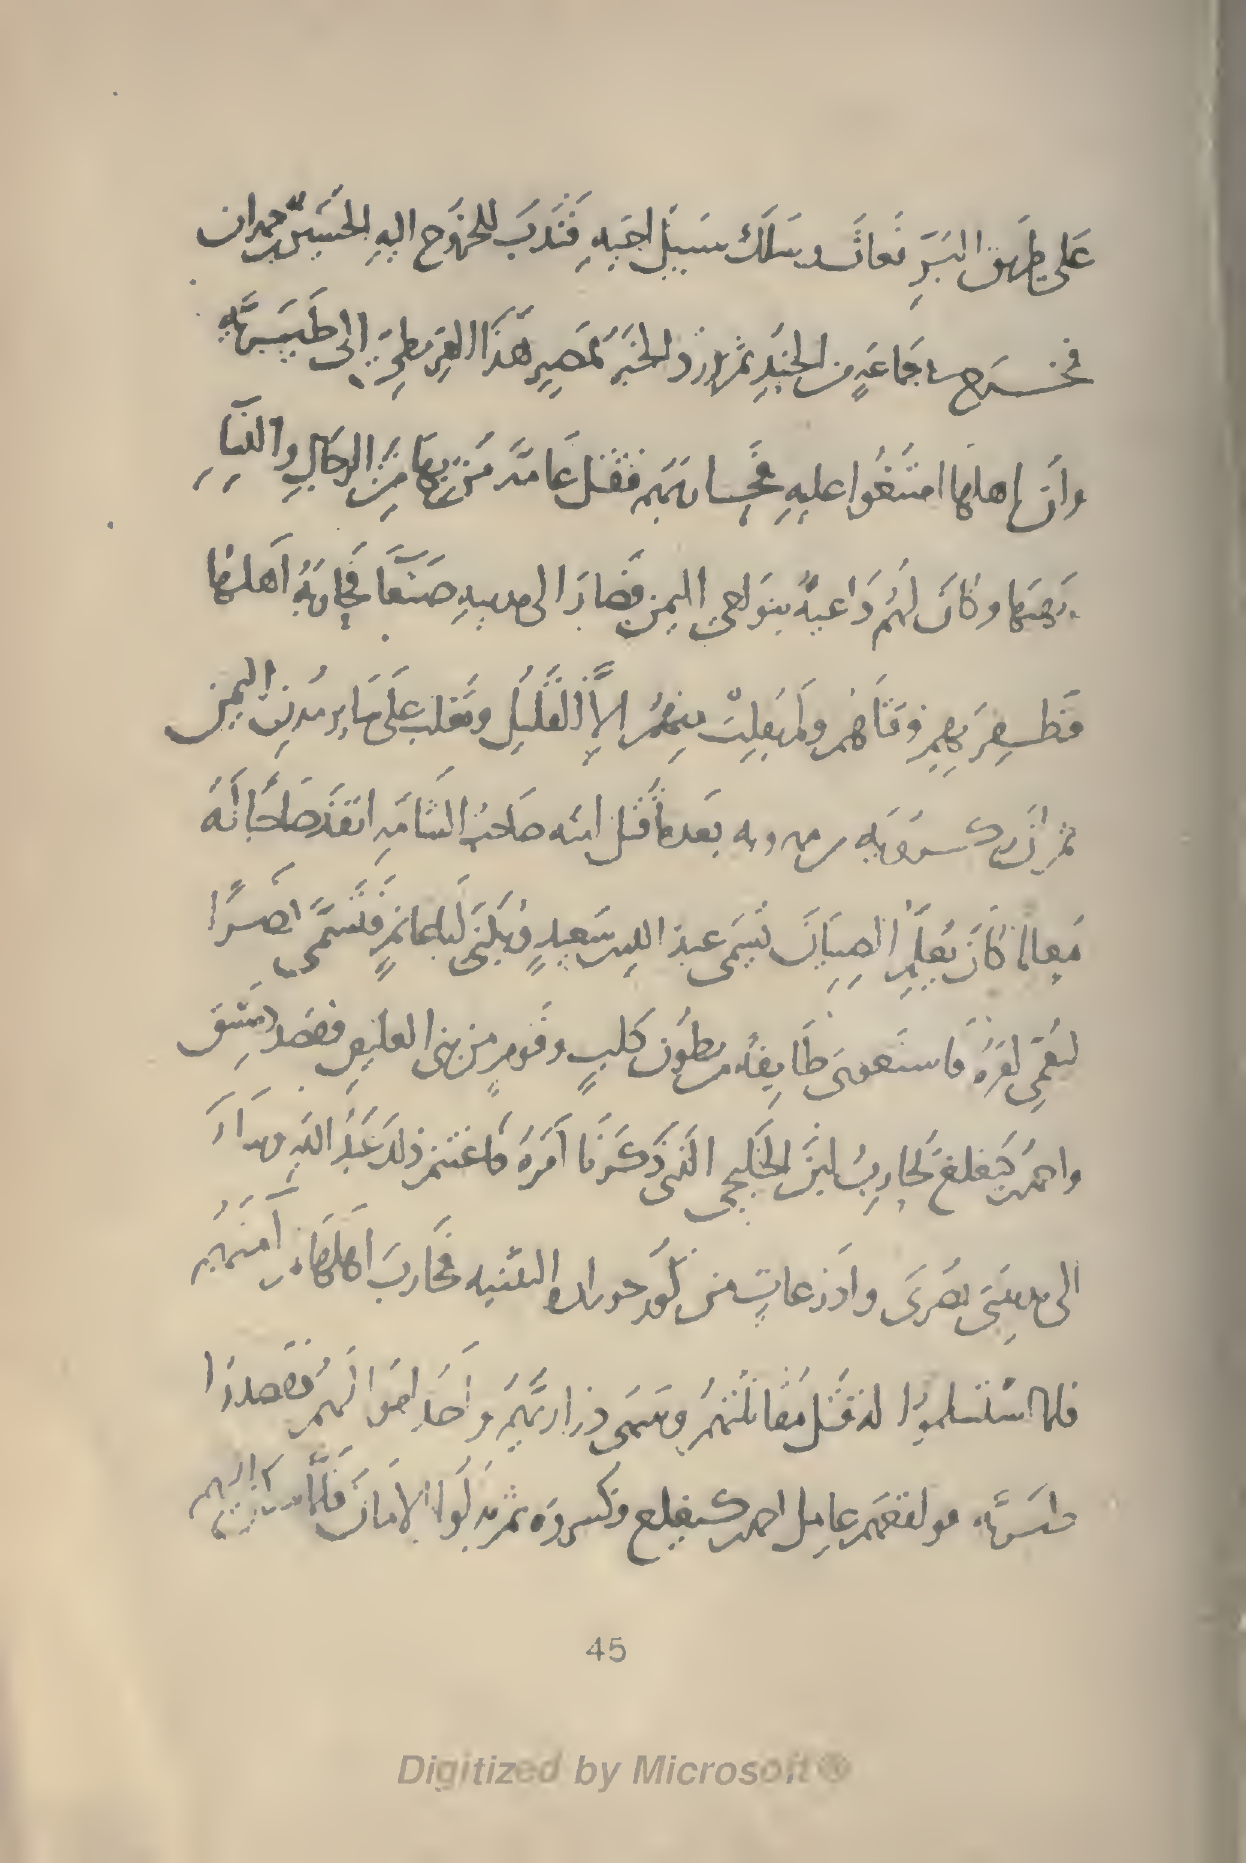 على طريق البر فعاث وسلك سبيل اخيه فندب للخروج اليه الحسين بن حمدان
فخرج في جماعة من الجند ثم ورد الخبر بمصير هذا القرمطي الى طبرية
وان اهلها امتنعوا عليه فحاربهم فقتل عامة من بها من الرجال والنساء
ونهبها وكان لهم داعية بنواحي اليمن فصار الى مدينة صنعا فحاربه اهلها
فظفر بهم وقتلهم ولم يفلت منهم الا القليل وتغلب على سائر مدن اليمن
ثم ان زكرويه بن مهرويه بعدما قتل ابنه صاحب الشامة انفذ صاحبا له
معلما كان يعلم الصبيان يسمى عبد الله بن سعيد ويكنى ابا غانم فتسمى نصرا
ليعمي امره فاستغوى طايفة من بطون كلب وقوم من بني العليص فقصد دمشق
واحمد بن كيغلغ يحارب ابن الخليجي الذي ذكرنا امره فاغتنم ذلك عبد الله وسار
الى مدينتي بصرى واذرعات من كور حوران والبثنية فحارب اهلها ثم آمنهم
فلما استسلموا له قتل مقاتلتهم وسبى ذراريهم واخذ اموالهم وقصدوا
طبرية فواقعهم عامل احمد بن كيغلغ فكسروه ثم بذلوا الامان فلما سكن اليهم
45
Digitized by Microsoft®